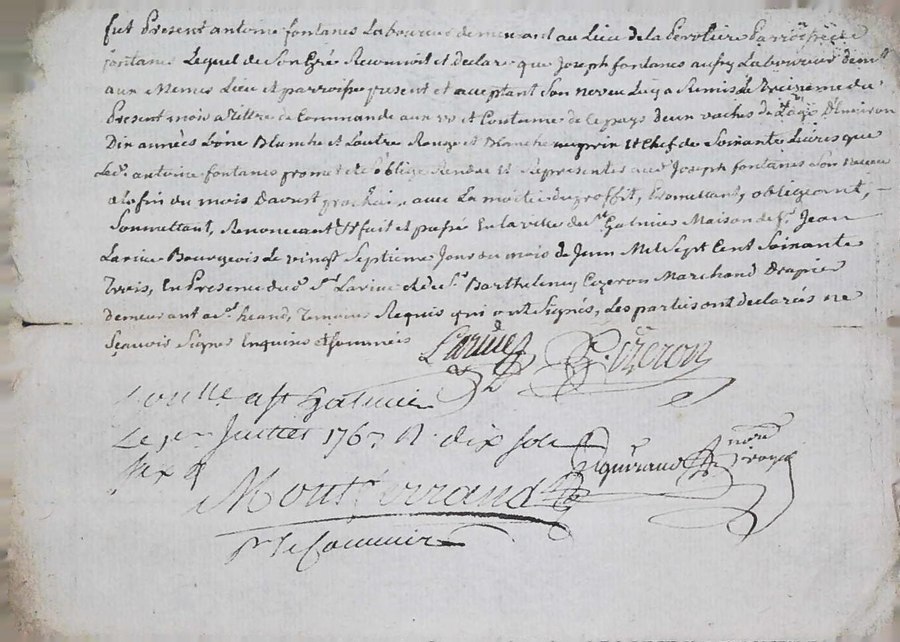 fut Present antoine fontanes Laboureur demeurant au Lieu de la Perotiere Parroisse de
fontanes Lequel de Son Gré Reconnoit et declare que Joseph fontanes aussy Laboureur dem.t
aux Memes Lieu et parroisse present et acceptant Son neveu Luy a Remis Le treizieme du
Present mois a tittre de Commande aux us et Coutume de Ce pays deux vaches de L'age D'Environ
Dix années L'une Blanche et L'autre Rouge et Blanche au prix et Chef de Soixante Livres que
Led. antoine fontanes promet et S'oblige Rendre et Representer aud. Joseph fontanes Son neveu
a la fin du mois Daoust prochain avec La moitié du proffit, Promettant, obligeant,
Soumettant, Renonceant &c fait et passé En la ville de S.t Galmier Maison de S.r Jean
Larive Bourgeois Le vingt Septieme Jour du mois de Juin Mil Sept Cent Soixante
Trois, En Presence dud. S.r Larive et de S.r Barthelemy Cizeron Marchand Drapier
demeurant a S.t heand, Temoins Requis qui ont Signés, Les parties ont declarés ne
Sçavoir Signer Enquises et Sommées
Larive Cizeron
a St Galmier
Le 1er Juillet 1763 R. dix sols
six d
notre royal
Montferrand
Pr le Commis